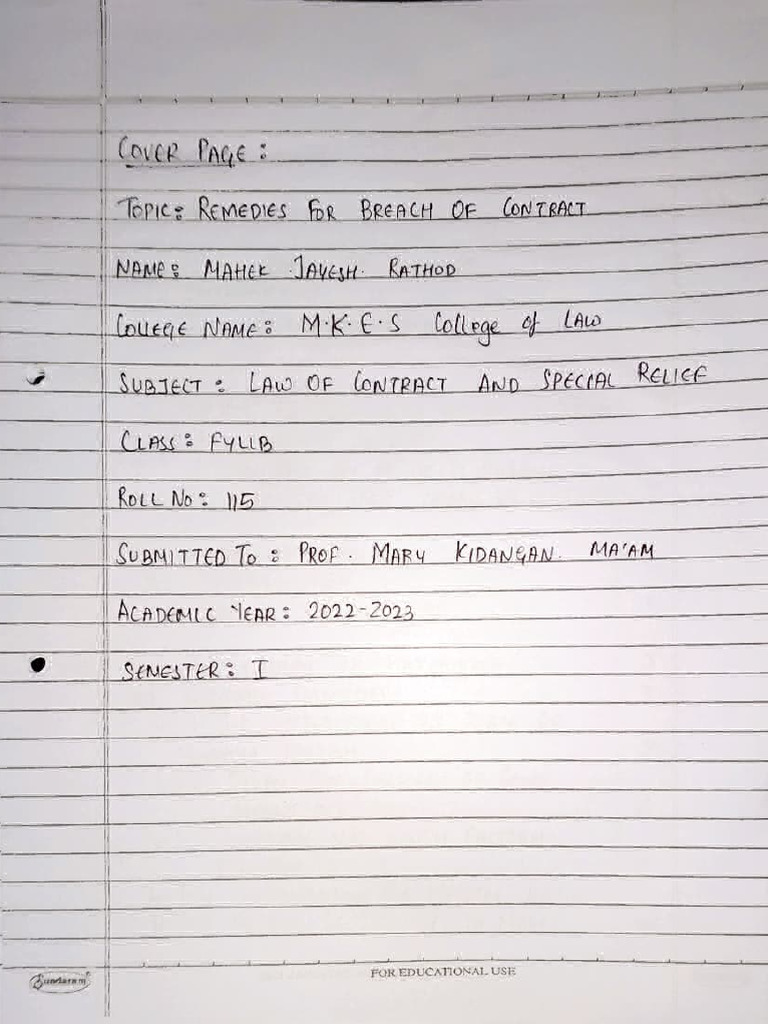 COVER PAGE :
TOPIC: REMEDIES FOR BREACH OF CONTRACT
NAME: MAHEK JAYESH. RATHOD
COLLEGE NAME: M.K.E.S College of LAW
SUBJECT : LAW OF CONTRACT AND SPECIAL RELIEF
CLASS: FYLLB
ROLL NO: 115
SUBMITTED TO : PROF. MARY KIDANGAN. MA'AM
ACADEMIC YEAR: 2022-2023
SEMESTER: I
Sundaram
FOR EDUCATIONAL USE